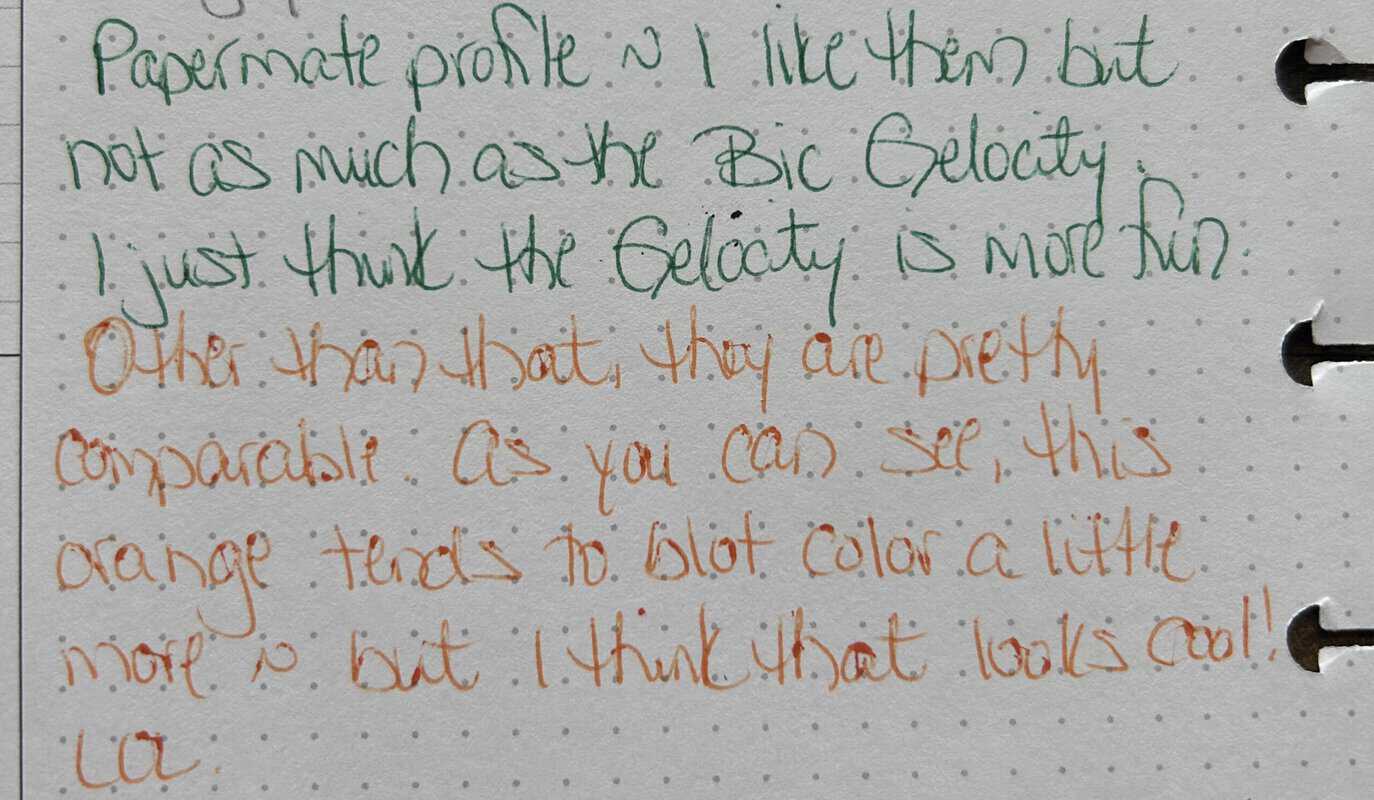 Papermate profile ~ I like them but
not as much as the Bic Gelocity.
I just think the Gelocity is more fun.
Other than that, they are pretty
comparable. As you can see, this
orange tends to blot color a little
more ~ but I think that looks cool!